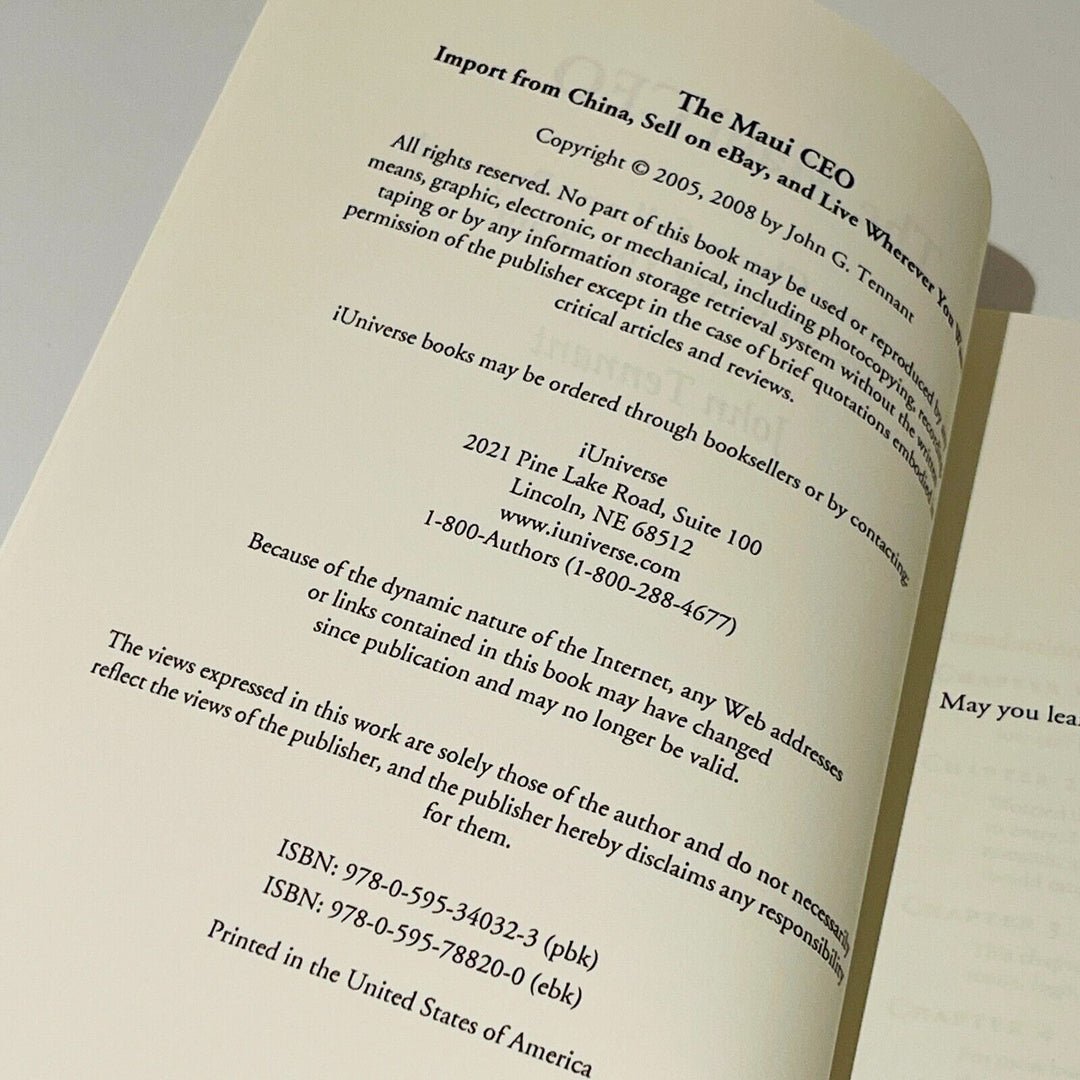 The Maui CEO
Import from China, Sell on eBay, and Live Wherever You
Copyright © 2005, 2008 by John G. Tennant
All rights reserved. No part of this book may be used or reproduced by
means, graphic, electronic, or mechanical, including photocopying, recording,
taping or by any information storage retrieval system without the written
permission of the publisher except in the case of brief quotations embodied
critical articles and reviews.
iUniverse books may be ordered through booksellers or by contacting:
iUniverse
2021 Pine Lake Road, Suite 100
Lincoln, NE 68512
www.iuniverse.com
1-800-Authors (1-800-288-4677)
Because of the dynamic nature of the Internet, any Web addresses
or links contained in this book may have changed
since publication and may no longer be valid.
The views expressed in this work are solely those of the author and do not necessarily
reflect the views of the publisher, and the publisher hereby disclaims any responsibility
for them.
ISBN: 978-0-595-34032-3 (pbk)
ISBN: 978-0-595-78820-0 (ebk)
Printed in the United States of America
May you